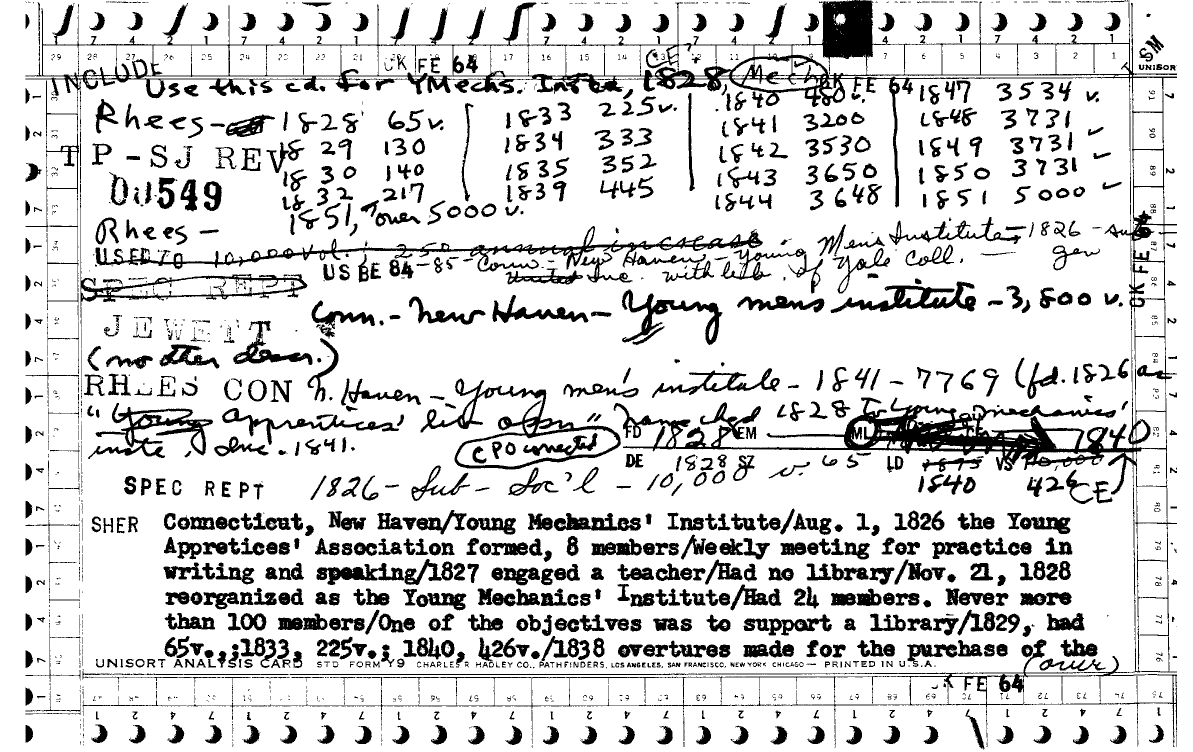 CK FE 64
CE
INCLUDE
Use this cd. for YMechs. Insta, 1828, Mech CK FE 64
SM
UNISORT
Rhees - 1828 65v. 1833 225v. 1840 480v. 1847 3534 v.
18 29 130 1834 333 1841 3200 1848 3731
T P-SJ REV 18 30 140 1835 352 1842 3530 1849 3731
00549 18 32 217 1839 445 1843 3650 1850 3731
1844 3648 1851 5000
Rhees - 1851, over 5000 v.
USED 70 10,000 vol.; 250 annual increase
US BE 84-85-Conn - New Haven - Young Mens Institute - 1826 - sub
United Inc. with lib. of Yale Coll. - gen
CK FE 64
SPEC REPT
JEWETT Conn. - New Haven - Young mens institute - 3,800 v.
(no other descr.)
RHEES CON N. Haven - Young men's institute - 1841 - 7769 (fd. 1826 as
"Young Apprentices' lib assn" Name chgd 1828 to Young mechanics'
inste, Inc. 1841.
CPO corrected
FD 1828 EM ML 1840
DE 1828 SZ v. 65 LD 1875 VS 10,000
1840 426 CE
SPEC REPT 1826 - Sub - Soc'l - 10,000
SHER Connecticut, New Haven/Young Mechanics' Institute/Aug. 1, 1826 the Young
Appretices' Association formed, 8 members/Weekly meeting for practice in
writing and speaking/1827 engaged a teacher/Had no library/Nov. 21, 1828
reorganized as the Young Mechanics' Institute/Had 24 members. Never more
than 100 members/One of the objectives was to support a library/1829, had
65v.,;1833, 225v.; 1840, 426v./1838 overtures made for the purchase of the
(over)
UNISORT ANALYSIS CARD STD FORM Y9 CHARLES R HADLEY CO., PATHFINDERS, LOS ANGELES, SAN FRANCISCO, NEW YORK CHICAGO — PRINTED IN U.S.A.
CK FE 64